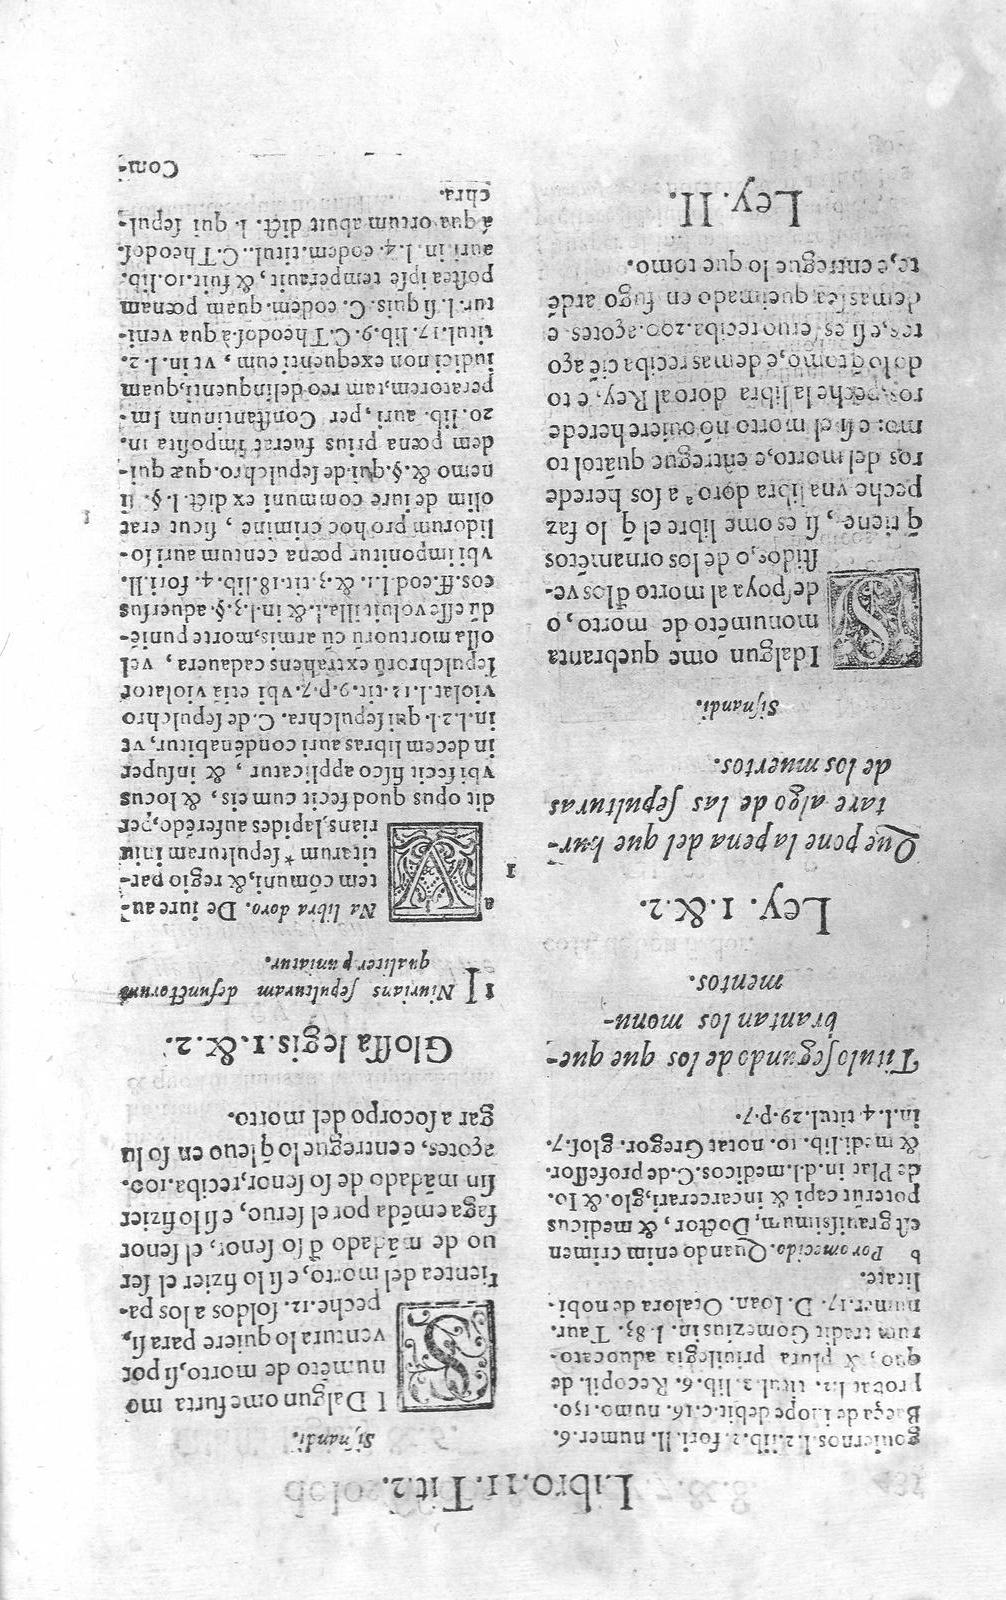 Libro.11.Tit.2.
gouiernos.l.2.lib.2. fori.ll. numer.6.
Baeça de inope debit.c.16. numo.150.
probat l.2. titul.2. lib.6. Recopil. de
quo, & plura priuilegia aduocato-
rum tradit Gomezius in. l.83. Taur.
numer.17. D. Ioan. Otalora de nobi-
litate.
b Por omecido. Quando enim crimen
est grauissimum, Doctor, & medicus
poterūt capi & incarcerari, glo. & Io.
de Plat in.d.l.medicos.C.de professor.
& medi.lib. 10. notat Gregor. glos.7.
in.l.4 titul.29.p.7.
Titulo segundo de los que que-
brantan los monu-
mentos.
Ley. 1.&.2.
Que pone la pena del que hur-
tare algo de las sepulturas
de los muertos.
Sisnandi.
SI dalgun ome quebranta
monumēto de morto, o
despoya al morto đlos ve-
stidos, o de los ornamētos
q̄ tiene, si es ome libre el q̄ lo faz
peche vna libra doro a a sos herede
ros del morto, e entregue quātol to
mo: e si el morto nō ouiere herede
ros, peche la libra doro al Rey, e to
do lo q̄ tomo, e demas reciba ciē aço
tes, e si es seruo reciba.200.açotes. e
demas sea queimado en fugo ardē
te, e entregue lo que tomo.
Ley.II.
Sisnandi.
SI Dalgun ome furta mo
numēto de morto, si por
ventura lo quiere para si,
peche.12. soldos a los pa-
rientes del morto, e si lo fizier el ser
uo de mādado đ so senor, el senor
faga emēda por el seruo, e si lo fizier
sin mādado de so senor, reciba.100.
açotes, e entregue lo q̄ leuo en so lu
gar a so corpo del morto.
Glossa legis.1.&.2.
1 INiurians sepulturam defunctorum
qualiter puniatur.
a
VNa libra doro. De iure au-
tem cōmuni, & regio par-
titarum * sepulturam iniu
rians, lapides auferēdo, per
1
dit opus quod fecit cum eis, & locus
vbi fecit fisco applicatur, & insuper
in decem libras auri condēnabitur, vt
in.l.2.l.qui sepulchra. C.de sepulchro
violat.l.12.tit.9.p.7.vbi etiā violator
sepulchrorū extrahens cadauera, vel
ossa mortuorū cū armis, morte puniē-
dū esse voluit illa.l.& in.l.3.§.aduersus
eos.ff.eod.l.1. & 3.tit.18.lib.4. fori.ll.
vbi imponitur pœna centum auri so-
lidorum pro hoc crimine, sicut erat
olim de iure communi ex dict.l.§. si
nemo &.§.qui.de sepulchro.quæ qui-
dem pœna prius fuerat imposita in.
20.lib. auri, per Constantinum Im-
peratorem, tam reo delinquenti, quam
iudici non exequenti eum, vt in.l.2.
titul.17.lib.9.C.Theodos.à qua veni-
tur.l.si quis.C. eodem. quam pœnam
postea ipse temperauit, & fuit.10.lib.
auri in.l.4.eodem.titul..C.Theodos.
à qua ortum abuit dict. l. qui sepul-
chra.
Com-